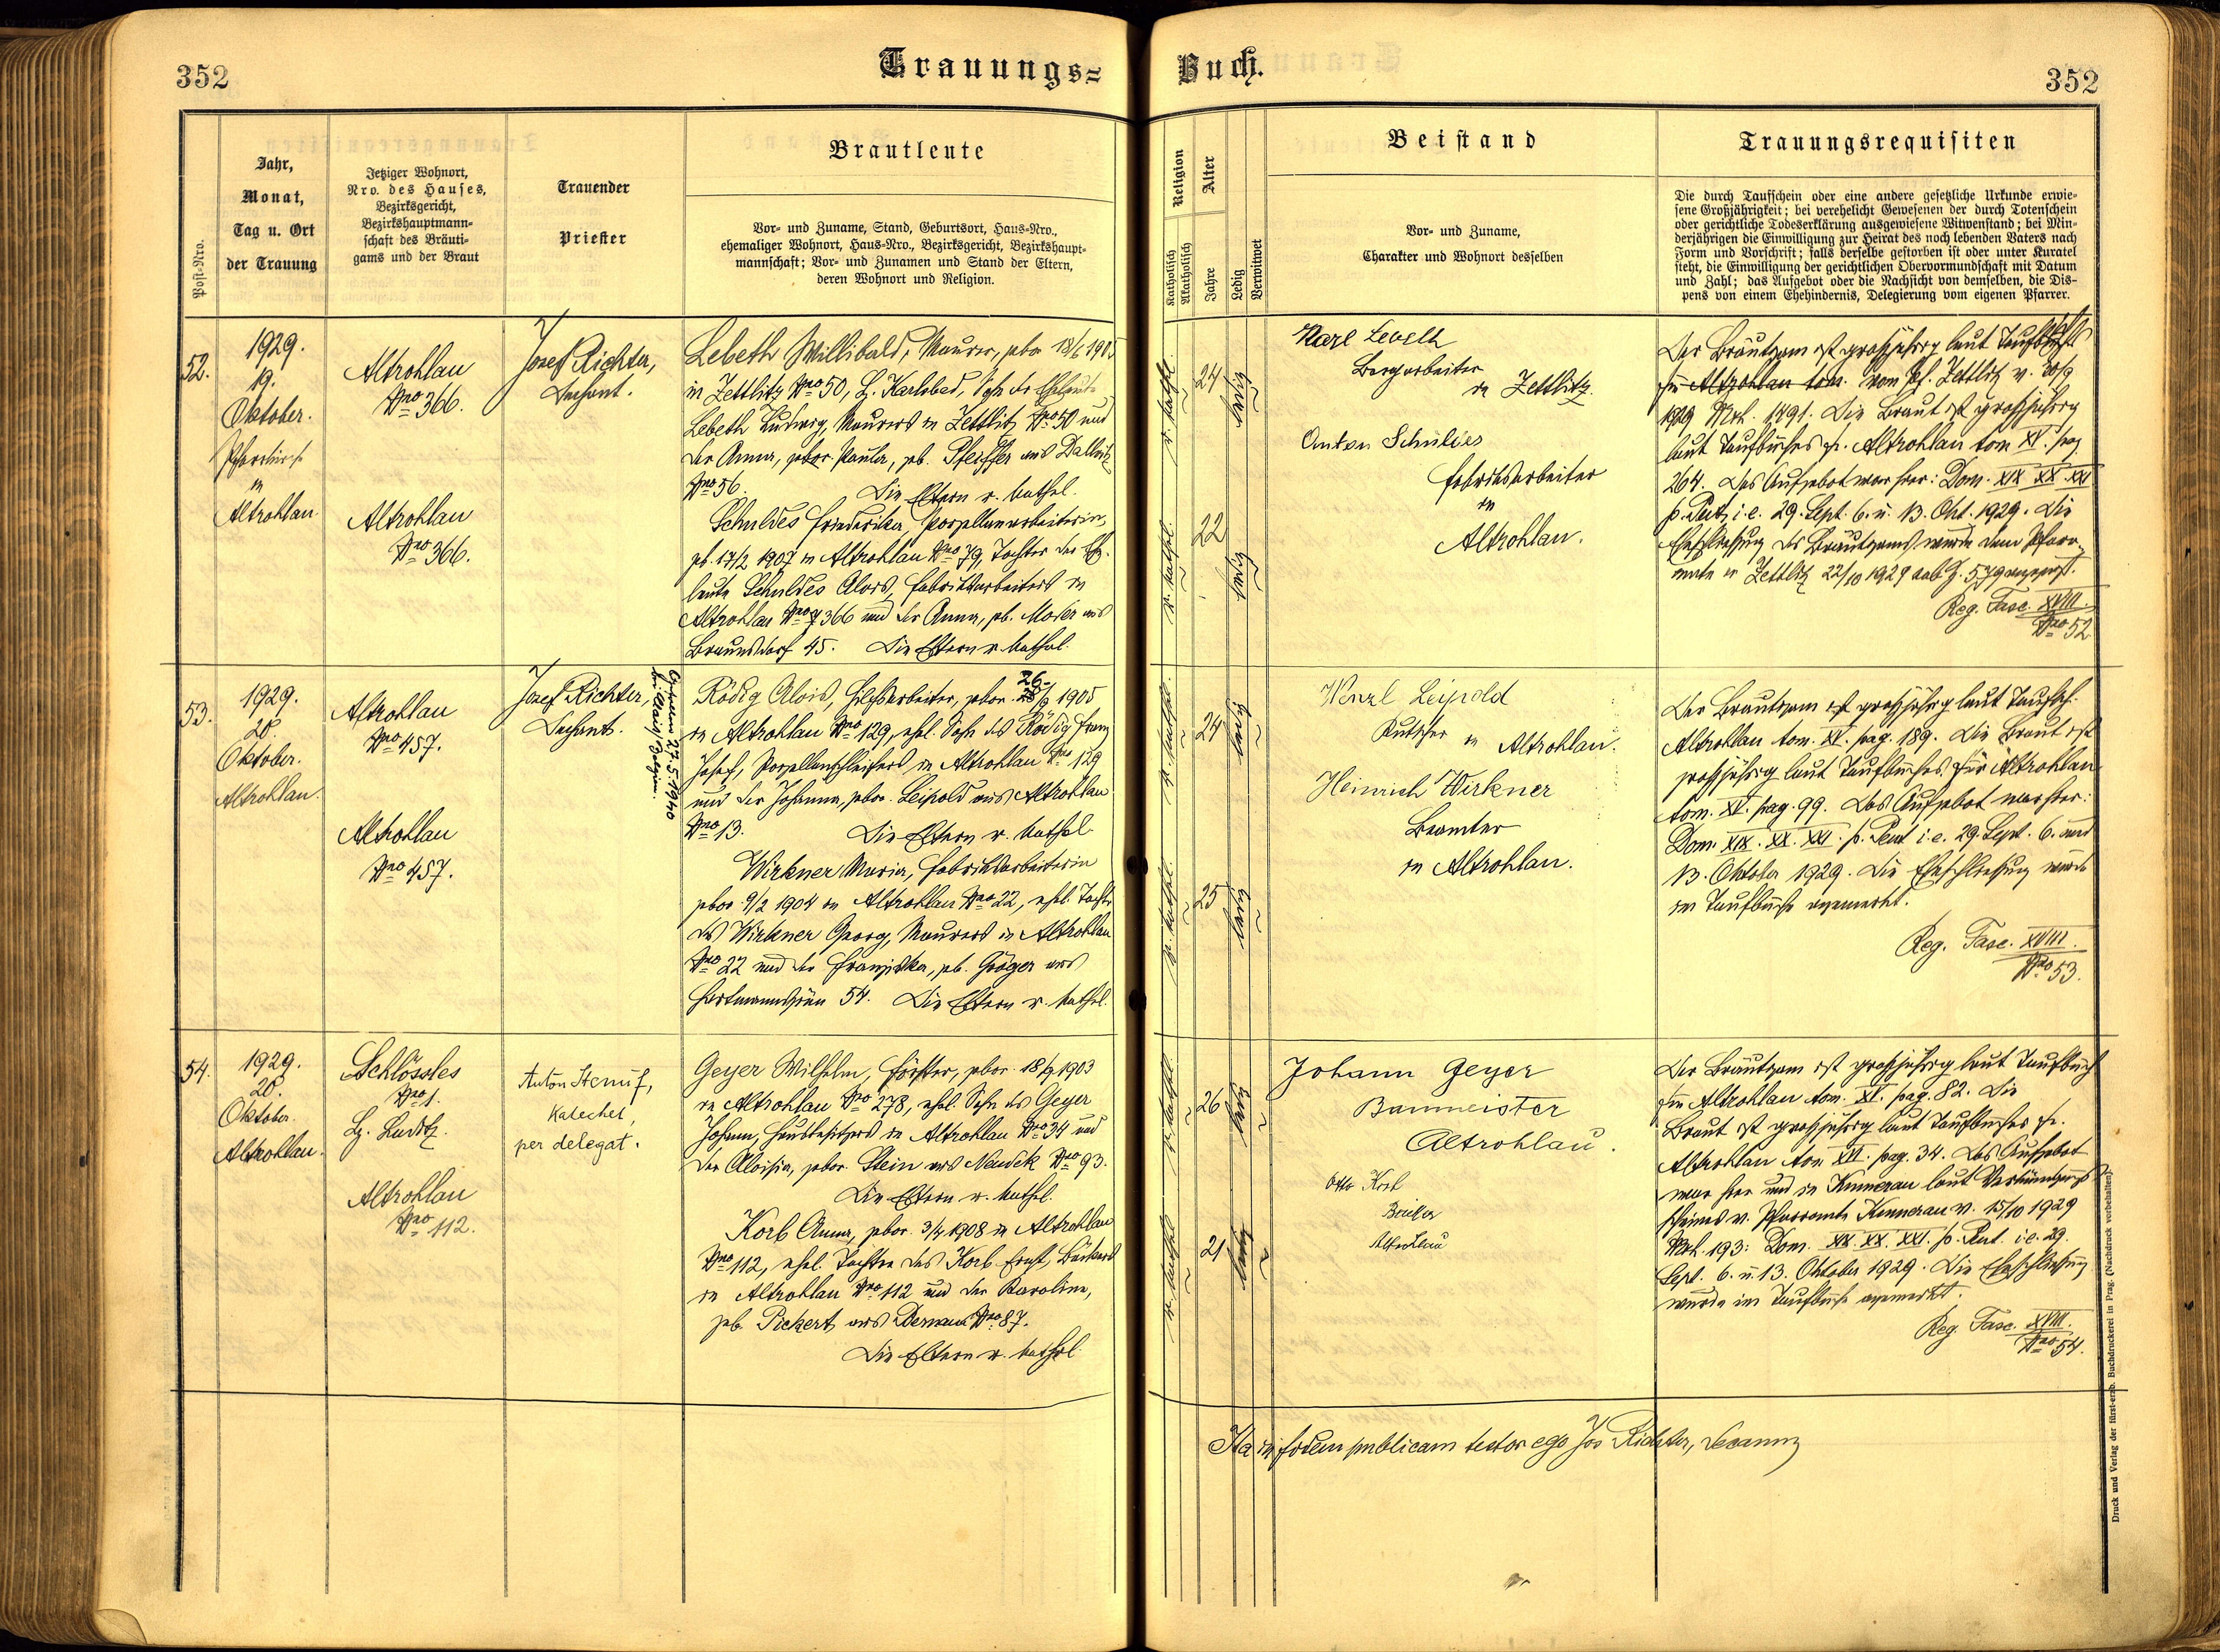 352
Trauungs-
Buch.
352
Post-Nro.
Jahr,
Monat,
Tag u. Ort
der Trauung
Jetziger Wohnort,
Nro. des Hauses,
Bezirksgericht,
Bezirkshauptmann-
schaft des Bräuti-
gams und der Braut
Trauender
Priester
Brautleute
Vor- und Zuname, Stand, Geburtsort, Haus-Nro.,
ehemaliger Wohnort, Haus-Nro., Bezirksgericht, Bezirkshaupt-
mannschaft; Vor- und Zunamen und Stand der Eltern,
deren Wohnort und Religion.
Religion
Katholisch
Akatholisch
Alter
Jahre
Ledig
Verwitwet
Beistand
Vor- und Zuname,
Charakter und Wohnort desselben
Trauungsrequisiten
Die durch Taufschein oder eine andere gesetzliche Urkunde erwie-
sene Großjährigkeit; bei verehelicht Gewesenen der durch Totenschein
oder gerichtliche Todeserklärung ausgewiesene Witwenstand; bei Min-
derjährigen die Einwilligung zur Heirat des noch lebenden Vaters nach
Form und Vorschrift; falls derselbe gestorben ist oder unter Kuratel
steht, die Einwilligung der gerichtlichen Obervormundschaft mit Datum
und Zahl; das Aufgebot oder die Nachsicht von demselben, die Dis-
pens von einem Ehehindernis, Delegierung vom eigenen Pfarrer.
52.
1929.
19.
Oktober.
Pfarrkirche
in
Altrohlau.
Altrohlau
Nro 366.
Altrohlau
Nro 366.
Josef Richter,
Dechant.
Lebeth Willibald, Maurer, gebor. 18/6 1905
in Zettlitz Nro 50, B. Karlsbad, Sohn der Eheleute
Lebeth Ludwig, Maurers in Zettlitz Nro 50 und
der Anna, gebor. Paula, geb. Pfeiffer aus Dallwitz
Nro 56. Die Eltern r. kathol.
Schuldes Friederika, Porzellanarbeiterin,
geb. 17/2 1907 in Altrohlau Nro 79, Tochter der Ehe-
leute Schuldes Alois, Fabriksarbeiters in
Altrohlau Nro 366 und der Anna, geb. Moder aus
Braunsdorf 45. Die Eltern r. kathol.
r. kathol.
24
ledig
r. kathol.
22
ledig
Karl Lebeth
Bergarbeiter
in Zettlitz
Anton Schuldes
Fabriksarbeiter
in
Altrohlau.
Der Bräutgam ist großjährig laut Taufschein
für Altrohlau tom. vom Pf. Zettlitz v.
1929 Mrk. 1491. Die Braut ist großjährig
laut Taufbuches f. Altrohlau tom XV. pag
264. Das Aufgebot war hier: Dom. XIX XX XXI
p. Pent. i.e. 29. Sept. 6. u. 13. Okt. 1929. Die
Eheschließung des Bräutgams wurde dem Pfarr-
amte in Zettlitz 22/10 1929 sub Z. 579 angezeigt.
Reg. Fasc. XVIII
Nro 52.
53.
1929.
20.
Oktober.
Altrohlau.
Altrohlau
Nro 457.
Altrohlau
Nro 457.
Josef Richter,
Dechant.
27.5.1940
Rödig Alois, Hilfsarbeiter, gebor. 26/9 1905
in Altrohlau Nro 129, ehel. Sohn des Rödig Franz
Josef, Porzellanschleifers in Altrohlau Nro 129
und der Johanna, gebor. Leipold aus Altrohlau
Nro 13. Die Eltern r. kathol.
Wirkner Maria, Fabriksarbeiterin
gebor. 9/2 1904 in Altrohlau Nro 22, ehel. Tochter
des Wirkner Georg, Maurers in Altrohlau
Nro 22 und der Franziska, geb. Gröger aus
Hartmannsgrün 54. Die Eltern r. kathol.
r. kathol.
24
ledig
r. kathol.
25
ledig
Wenzl Leipold
Kutscher in Altrohlau.
Heinrich Wirkner
Beamter
in Altrohlau.
Der Bräutgam ist großjährig laut Taufsch.
Altrohlau tom. XV. pag. 189. Die Braut ist
großjährig laut Taufbuches für Altrohlau
tom. XV. pag. 99. Das Aufgebot war hier:
Dom. XIX. XX. XXI. p. Pent i.e. 29. Sept. 6. und
13. Oktober 1929. Die Eheschließung wurde
im Taufbuche angemerkt.
Reg. Fasc. XVIII.
Nro 53.
54.
1929.
20.
Oktober.
Altrohlau.
Schlössles
Nro 1.
Bz. Luditz.
Altrohlau
Nro 112.
Anton
Katechet,
per delegat.
Geyer Wilhelm, Förster, gebor. 18/9 1903
in Altrohlau Nro 278, ehel. Sohn des Geyer
Johann, Hausbesitzers in Altrohlau Nro 34 und
der Aloisia, gebor. Stein aus Neudek Nro 93.
Die Eltern r. kathol.
Korb Anna, gebor. 3/4 1908 in Altrohlau
Nro 112, ehel. Tochter des Korb Ernst, Bäckers
in Altrohlau Nro 112 und der Karoline,
geb. Pickert aus Dernau Nro 87.
Die Eltern r. kathol.
r. kathol.
26
ledig
r. kathol.
21
ledig
Johann Geyer
Baumeister
Altrohlau.
Otto Korb
Bäcker
Altrohlau
Der Bräutgam ist großjährig laut Taufbuch
für Altrohlau tom. XV. pag. 82. Die
Braut ist großjährig laut Taufbuches f.
Altrohlau tom XVI. pag. 34. Das Aufgebot
war hier und in Kumerau laut Verkündungs-
scheines v. Pfarramte Kumerau v. 15/10 1929
Mrk. 193: Dom. XIX. XX. XXI. p. Pent. i.e. 29.
Sept. 6. u. 13. Oktober 1929. Die Eheschließung
wurde im Taufbuche angemerkt.
Reg. Fasc. XVIII.
Nro 54.
Ita in fidem publicam testor ego Jos Richter, Decanus
Druck und Verlag der fürst-erzb. Buchdruckerei in Prag. (Nachdruck vorbehalten)